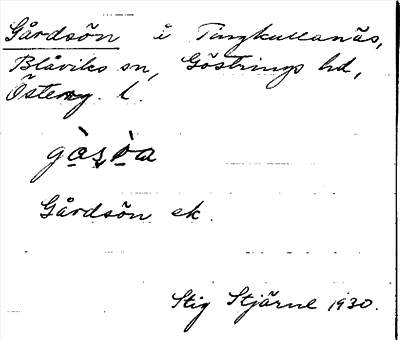 Gårdsön i Tingkullanäs,
Blåviks sn, Göstrings hd,
Österg. l.
gàs̩ò̩a
Gårdsön ek.
Stig Stjärne 1930.